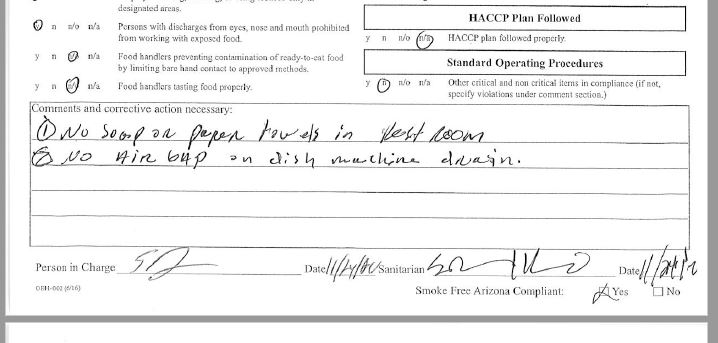 designated areas.
y n n/o n/a Persons with discharges from eyes, nose and mouth prohibited
from working with exposed food.
y n n/o n/a Food handlers preventing contamination of ready-to-eat food
by limiting bare hand contact to approved methods.
y n n/o n/a Food handlers tasting food properly.
HACCP Plan Followed
y n n/o n/a HACCP plan followed properly.
Standard Operating Procedures
y n n/o n/a Other critical and non critical items in compliance (if not,
specify violations under comment section.)
Comments and corrective action necessary:
① No soap or paper towels in Rest Room
② NO AIR GAP on dish machine drain.
Person in Charge Date Sanitarian Date
OEH-002 (6/16)
Smoke Free Arizona Compliant: Yes No